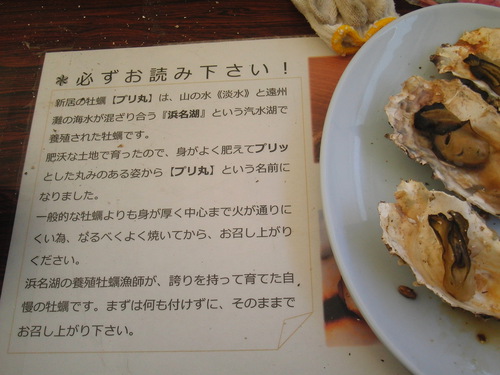 ＊必ずお読み下さい！
新居の牡蠣【プリ丸】は、山の水《淡水》と遠州
灘の海水が混ざり合う『浜名湖』という汽水湖で
養殖された牡蠣です。
肥沃な土地で育ったので、身がよく肥えてプリッ
とした丸みのある姿から【プリ丸】という名前に
なりました。
一般的な牡蠣よりも身が厚く中心まで火が通りに
くい為、なるべくよく焼いてから、お召し上がり
ください。
浜名湖の養殖牡蠣漁師が、誇りを持って育てた自
慢の牡蠣です。まずは何も付けずに、そのままで
お召し上がり下さい。